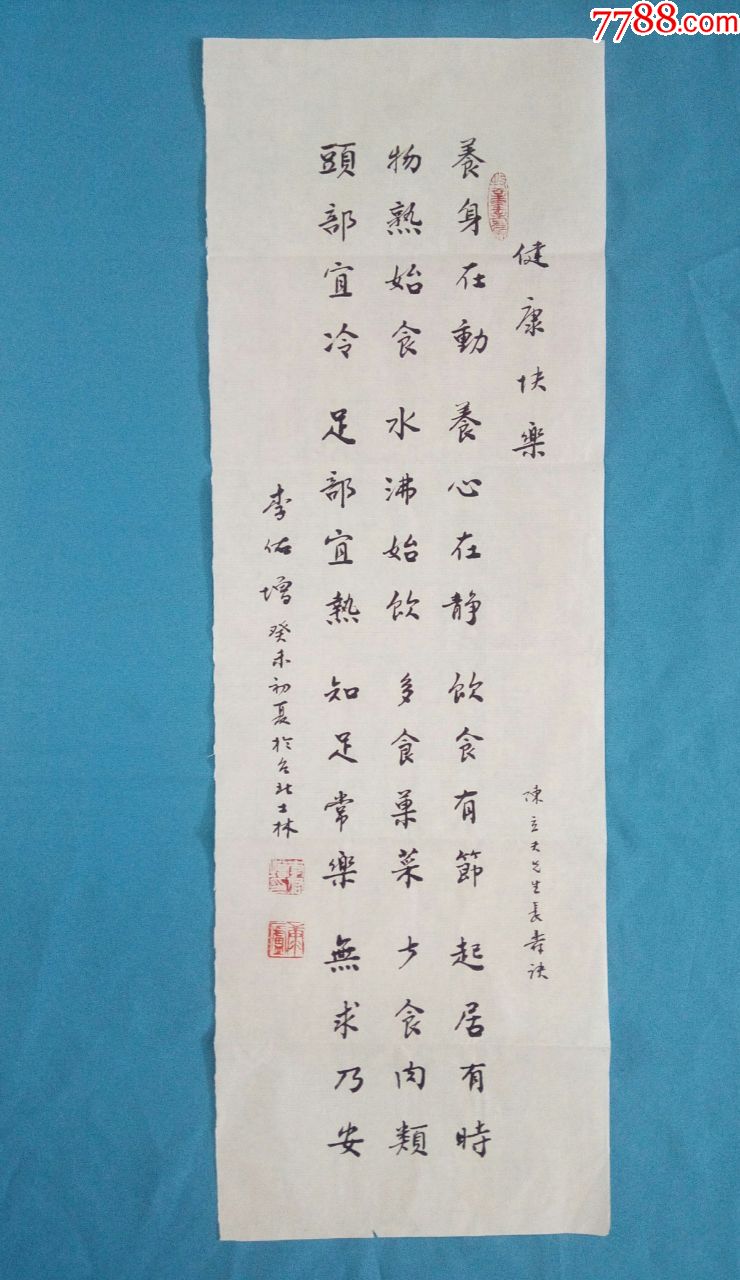 7788.com
健康快樂
陳立夫先生長壽訣
養身在動 養心在静 飲食有節 起居有時
物熟始食 水沸始飲 多食菓菜 少食肉類
頭部宜冷 足部宜熱 知足常樂 無求乃安
李佑增 癸未初夏於台北士林